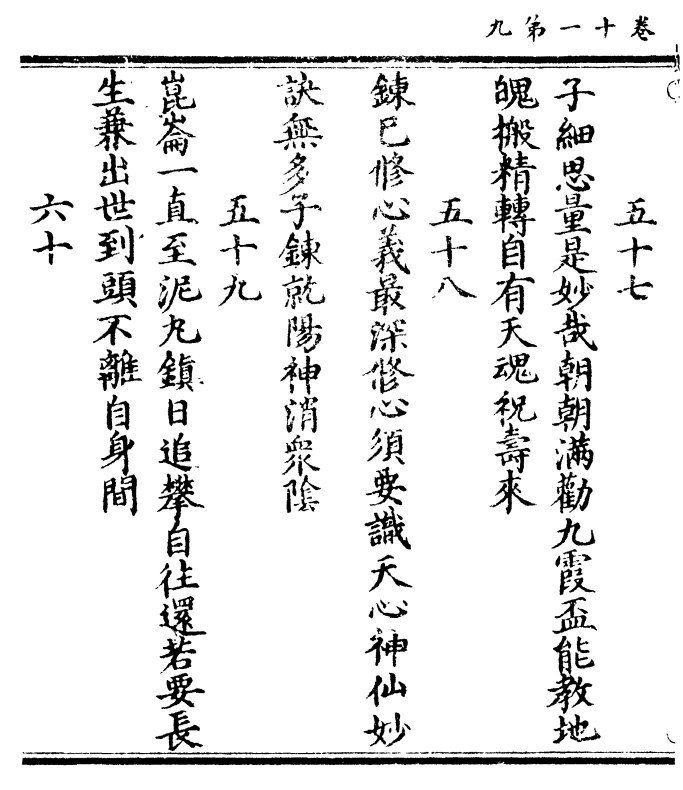 卷十一第九
五十七
子細思量是妙哉朝朝滿勸九霞盃能教地
魄搬精轉自有天魂祝壽來
五十八
鍊已修心義最深修心須要識天心神仙妙
訣無多子鍊就陽神消衆陰
五十九
崑崙一直至泥丸鎮日追攀自往還若要長
生兼出世到頭不離自身間
六十